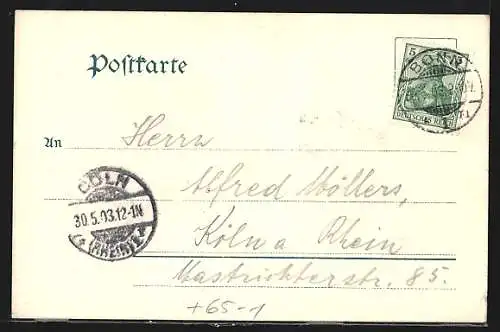 Postkarte
5
BONN
DEUTSCHES REICH
An
Herrn
Alfred Möllers,
Köln a Rhein
Mastrichterstr. 85.
CÖLN
30.5.03.12-1N
(RHEIN)
+65-1